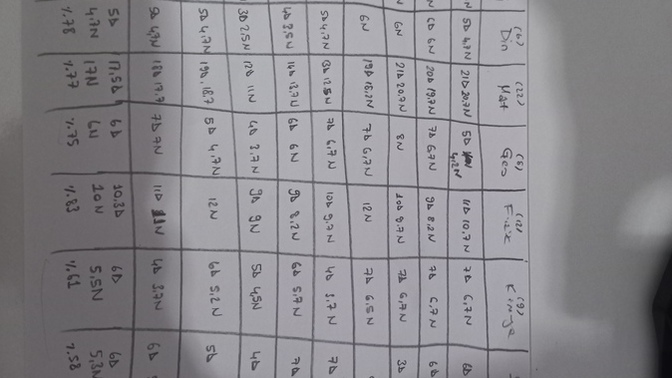 (6) (22) (8) (12) (9)
Din Mat Geo Fizik Kimya
5D 4,7N 21D 20,7N 5D 4,2N 10,7N 7D 6,7N 6D
6D 6N 20D 19,7N 7D 6,7N 9D 8,2N 7D 6,7N 6D
6N 21D 20,7N 8N 10D 9,7N 7D 6,7N 3D
6N 19D 18,2N 7D 6,7N 12N 7D 6,5N
5D 4,7N 13D 12,5N 7D 6,7N 10D 9,7N 4D 3,7N 7D
4D 3,5N 14D 13,7N 6D 6N 9D 8,2N 6D 5,7N 7D
3D 2,5N 12D 11N 4D 3,7N 9D 9N 5D 4,5N 4D
5D 4,7N 19D 18,7 5D 4,7N 12N 6D 5,2N 5D
5D 4,7N 18D 17,7 7D 7N 11D 11N 4D 3,7N 6D
5D 17,5D 6D 10,3D 6D 6D
4,7N 17N 6N 10N 5,5N 5,3N
%78 %77 %75 %83 %61 %58